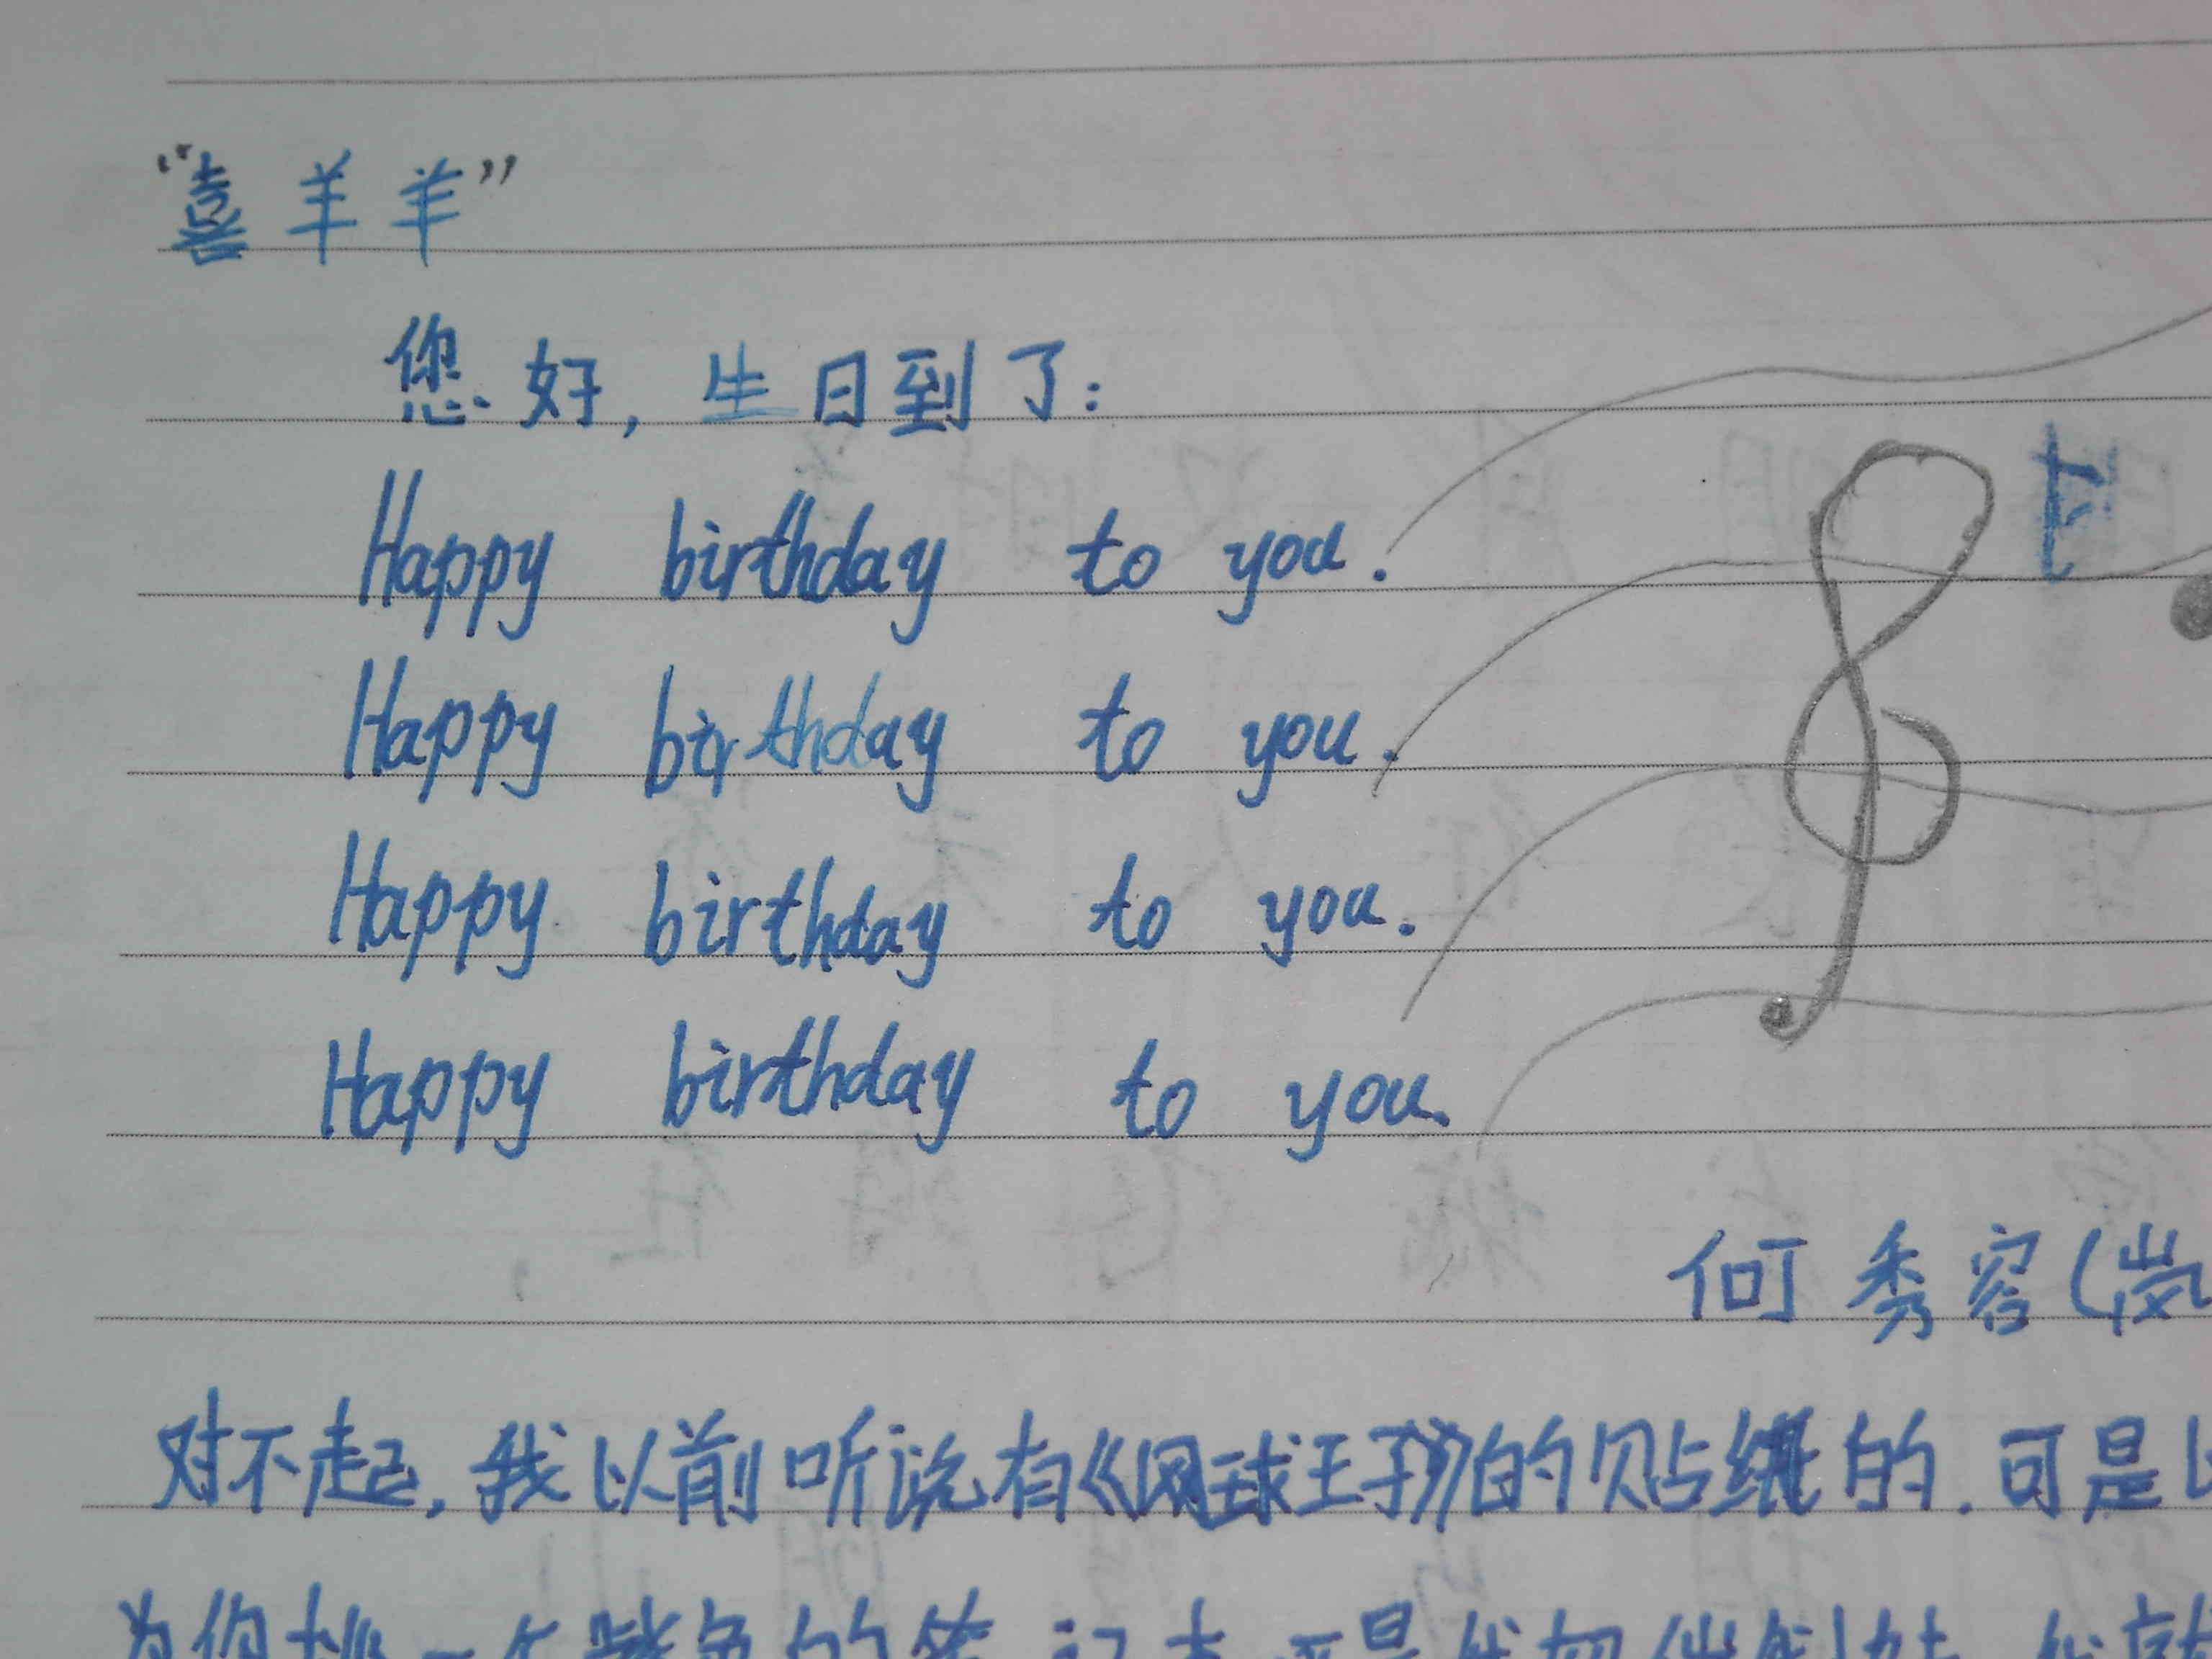 “喜羊羊”
您好，生日到了：
Happy birthday to you.
Happy birthday to you.
Happy birthday to you.
Happy birthday to you.
何秀容(岚
对不起，我以前听说有《网球王子》的贴纸的．可是
为你挑一个紫色的笔记本